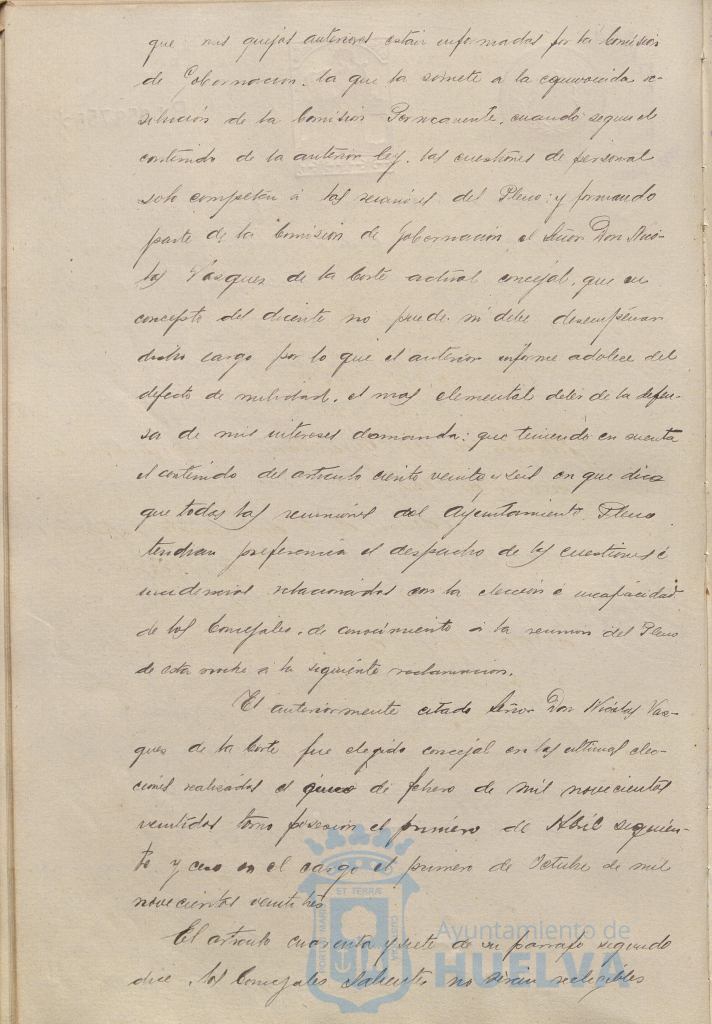 que mis quejas anteriores están informadas por la Comisión
de Gobernación, la que la somete a la equivocida re-
solución de la Comisión Permanente, cuando según el
contenido de la anterior ley, las cuestiones de personal
solo competen á las reuniones del Pleno: y formando
parte de la Comisión de Gobernación el Señor Don Nico-
las Vasques de la Corte actual concejal, que en
concepto del dicente no puede ni debe desempeñar
dicho cargo por lo que el anterior informe adolece del
defecto de nulidad, el mas elemental deber de la defen-
sa de mis intereses demanda: que teniendo en cuenta
el contenido del articulo ciento veinte y seis en que dice
que todas las reuniones del Ayuntamiento Pleno
tendran preferencia el despacho de las cuestiones é
incidencias relacionadas con la elección é incapacidad
de los Concejales, de conocimiento á la reunion del Pleno
de esta noche á la siguiente reclamacion.
El anteriormente citado Señor Don Nicolas Vas-
ques de la Corte fue elegido concejal en las ultimas elec-
ciones realizadas el cinco de febrero de mil novecientos
veintidos tomo posesion el primero de Abril siguien-
te y ceso en el cargo el primero de Octubre de mil
novecientos veintitres
El articulo cuarenta y siete de su parrafo segundo
dice, los Concejales salientes no serán reelegibles
ET TERRÆ
Ayuntamiento de
HUELVA